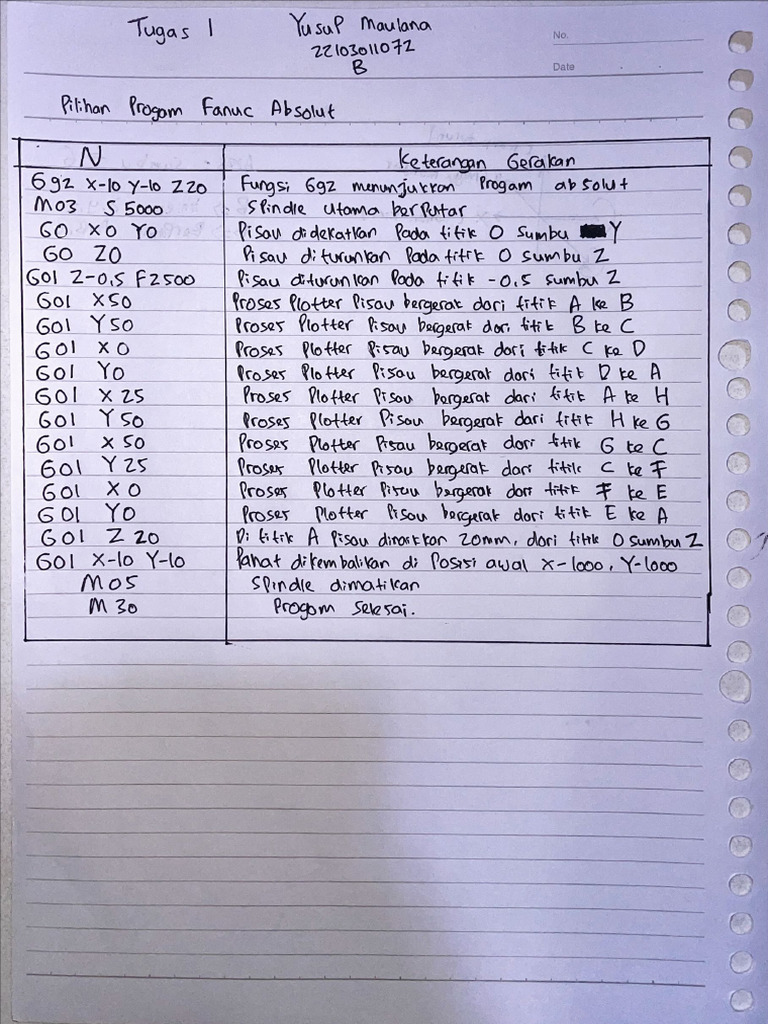 Tugas 1 Yusup Maulana
22103011072
B
No.
Date
Pilihan Progam Fanuc Absolut
N Keterangan Gerakan
G92 X-10 Y-10 Z20 Fungsi G92 menunjukkan Progam absolut
M03 S 5000 Spindle Utama berputar
G0 X0 Y0 Pisau didekatkan Pada titik 0 sumbu Y
G0 Z0 Pisau diturunkan Pada titik 0 sumbu Z
G01 Z-0,5 F2500 Pisau diturunkan Pada titik -0,5 sumbu Z
G01 X50 Proses Plotter Pisau bergerak dari titik A ke B
G01 Y50 Proses Plotter Pisau bergerak dari titik B ke C
G01 X0 Proses Plotter Pisau bergerak dari titik C ke D
G01 Y0 Proses Plotter Pisau bergerak dari titik D ke A
G01 X25 Proses Plotter Pisau bergerak dari titik A ke H
G01 Y50 Proses Plotter Pisau bergerak dari titik H ke G
G01 X50 Proses Plotter Pisau bergerak dari titik G ke C
G01 Y25 Proses Plotter Pisau bergerak dari titik C ke F
G01 X0 Proses Plotter Pisau bergerak dari titik F ke E
G01 Y0 Proses Plotter Pisau bergerak dari titik E ke A
G01 Z 20 Di titik A Pisau dinaikkan 20mm, dari titik 0 sumbu Z
G01 X-10 Y-10 Pahat dikembalikan di Posisi awal X-1000, Y-1000
M05 Spindle dimatikan
M 30 Progam Selesai.